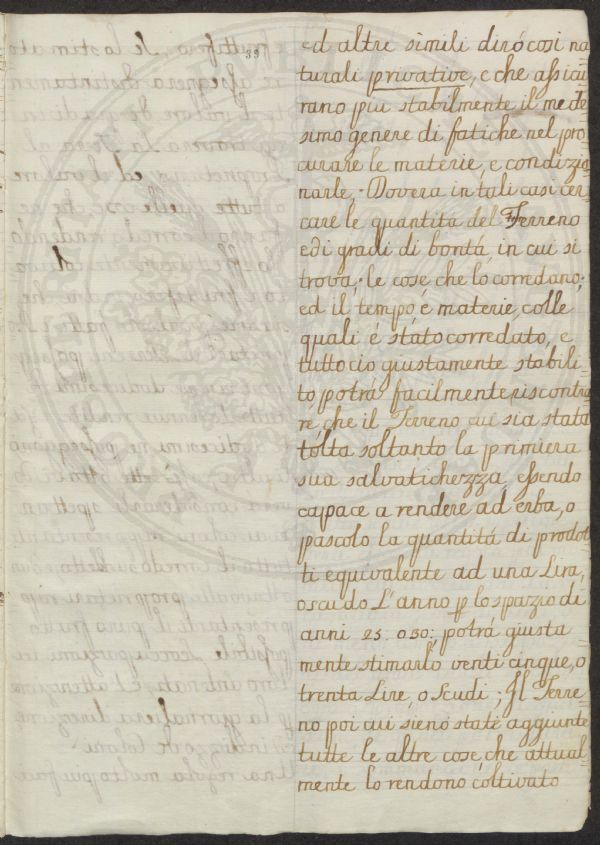 39
ed altre simili diró cosi na
turali privative, e che assicu
rano piu stabilmente il mede
simo genere di fatiche nel pro
curare le materie, e condizio
narle. Dovera in tali casi cer
care le quantita del Terreno
e di gradi di bontá, in cui si
trova; le cose che lo corredano;
ed il tempo, é materie, colle
quali é stato corredato, e
tutto cio giustamente stabili
to potrá facilmente riscontra
re che il Terreno cui sia stata
tolta soltanto la primiera
sua salvatichezza, essendo
capace a rendere ad erba, o
pascolo la quantitá di prodot
ti equivalente ad una Lira,
o scudo L'anno p lo spazio di
anni 25. o 30; potrá giusta
mente stimarlo venti cinque, o
trenta Lire, o Scudi; Il Terre
no poi cui sieno state aggiunte
tutte le altre cose, che attual
mente lo rendono coltivato